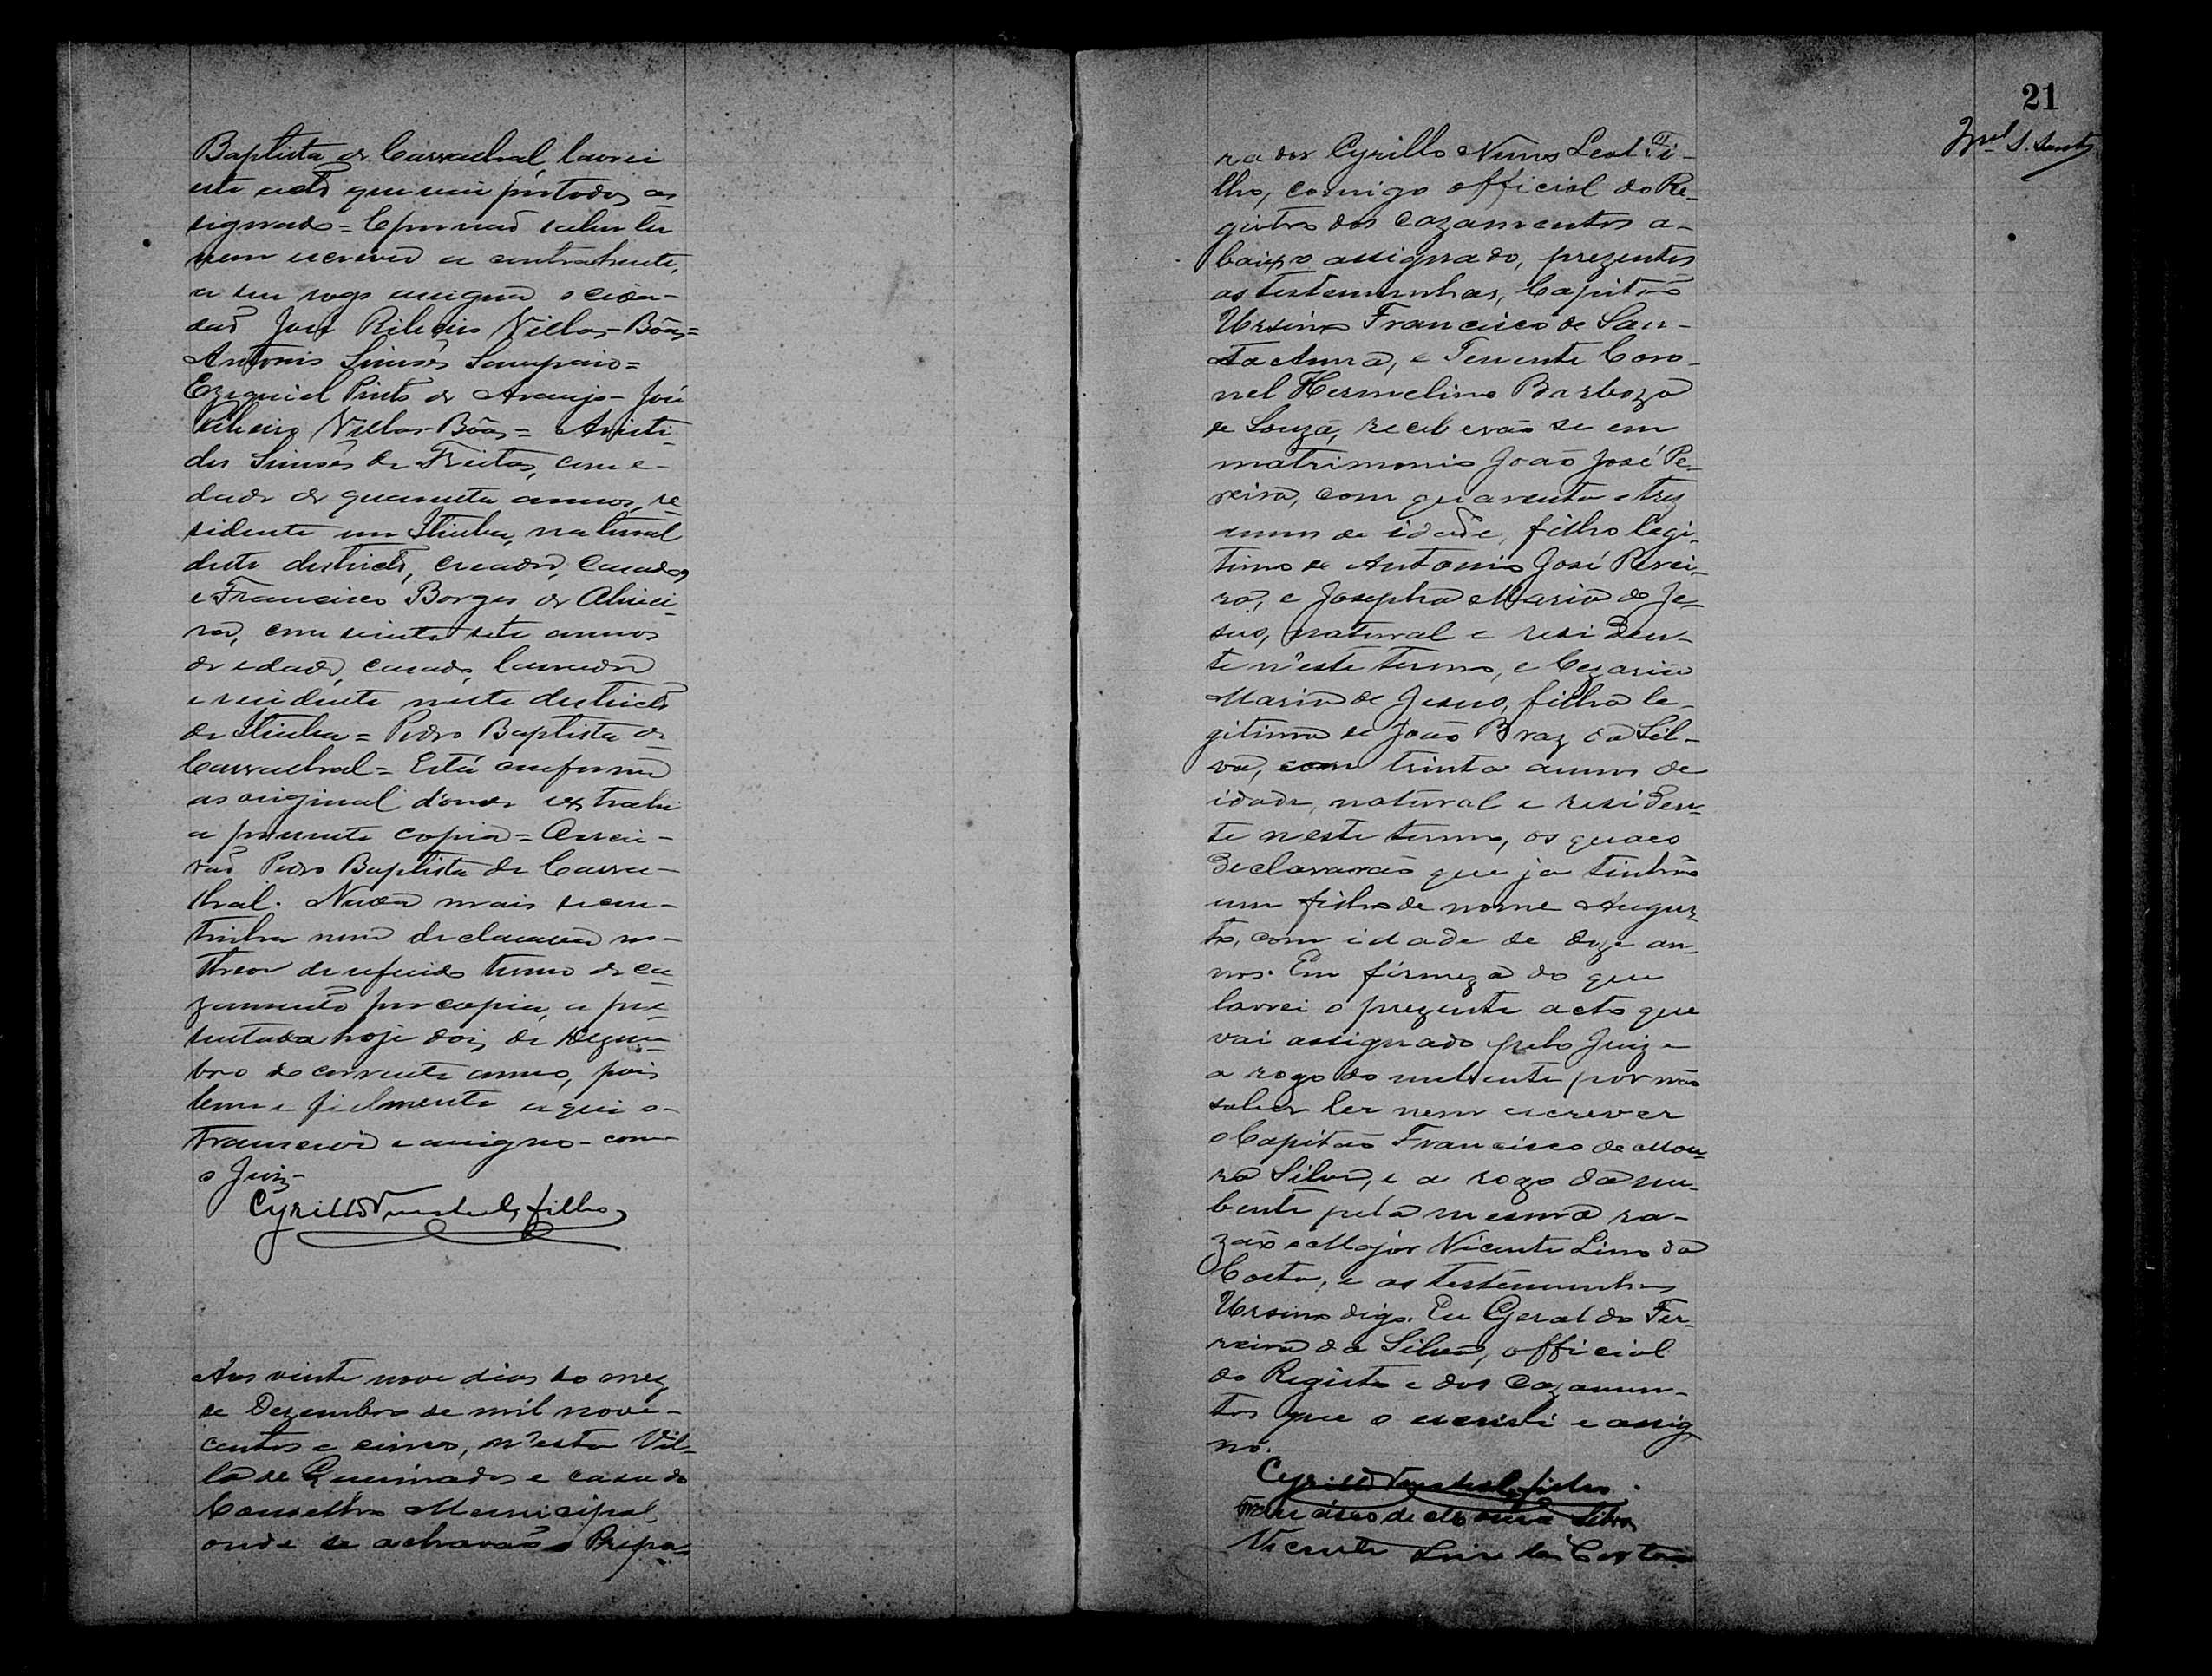 Baptista de Carvalhal, lavrei
este acto que vai por todos as
signado = E por não saber ler
nem escrever a contrahente,
a seu rogo assigna o cida-
dão José Ribeiro Villas-Bôas =
Antonio Simões Sampaio =
Ezequiel Pinto de Araujo - José
Ribeiro Villas-Bôas = Aristi-
des Simões de Freitas, com e-
dade de quarenta annos, re-
sidente em Itiuba, natural
deste districto, creador, casado,
e Francisco Borges de Olivei-
ra, com vinte sete annos
de edade, casado, lavrador
e residente neste districto
de Itiuba = Pedro Baptista de
Carvalhal = Está conforme
ao original d'onde extrahi
a presente copia = Escri-
vão Pedro Baptista de Carva-
lhal. Nada mais se con-
tinha nem declarava no
theor do referido termo de ca-
zamento por copia, a pre-
sentada hoje dois de Dezem-
bro do corrente anno, pois
bem e fielmente aqui o
transcrevi e assigno com
o Juiz
Cyrillo Nunes Leal filho
Aos vinte nove dias do mez
de Dezembro de mil nove-
centos e cinco, n'esta Vil-
la de Queimadas e casa do
Conselho Municipal
onde se achavão o Prepa-
21
Mel S. Santos
ra dor Cyrillo Nunes Leal Fi-
lho, comigo official do Re-
gistro dos Cazamentos a-
baixo assignado, prezentes
as testemunhas, Capitão
Ursino Francisco de San-
ta Anna, e Tenente Coro-
nel Hermelino Barboza
de Souza, receberão se em
matrimonio João José Pe-
reira, com quarenta e trez
annos de idade, filho legi-
timo de Antonio José Perei-
ra, e Josepha Maria de Je-
sus, natural e residen-
te n'este termo, e Cezaria
Maria de Jesus, filha le-
gitima de João Braz da Sil-
va, com trinta annos de
idade, natural e residen-
te n'este termo, os quaes
declararão que ja tinhão
um filho de nome Augus-
to, com idade de doze an-
nos. Em firmeza do que
lavrei o prezente acto que
vai assignado pelo Juiz e
a rogo do nubente por não
saber ler nem escrever
o Capitão Francisco de Mou-
ra Silva, e a rogo da nu-
bente pela mesma ra-
zão o Major Vicente Lino da
Costa, e as testemunhas
Ursino digo. Eu Geraldo Fer-
reira da Silva, official
do Registo e dos Cazamen-
tos que o escrivi e assig
no.
Cyrillo Nunes Leal filho.
Francisco de Moura Silva
Vicente Lino da Costa